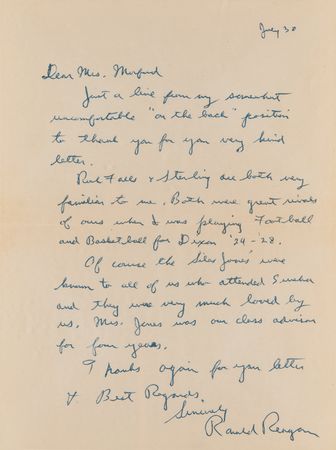 July 30
Dear Mrs. Morford
Just a line from my somewhat
uncomfortable "on the back" position
to thank you for your very kind
letter.
Rock Falls & Sterling are both very
familiar to me. Both were great rivals
of ours when I was playing Football
and Basketball for Dixon '24-28.
Of course the Silas Jones were
known to all of us who attended Eureka
and they were very much loved by
us. Mrs. Jones was our class advisor
for four years.
Thanks again for your letter
& Best Regards.
Sincerely
Ronald Reagan